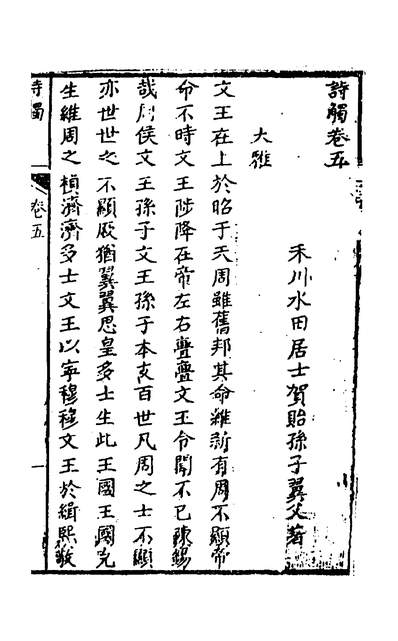 詩觸卷五
禾川水田居士賀貽孫子翼父著
大雅
文王在上於昭于天周雖舊邦其命維新有周不顯帝
命不時文王陟降在帝左右亹亹文王令聞不已陳錫
哉周侯文王孫子文王孫子本支百世凡周之士不顯
亦世世之不顯厥猶翼翼思皇多士生此王國王國克
生維周之楨濟濟多士文王以寧穆穆文王於緝熙敬
詩觸
卷五
一